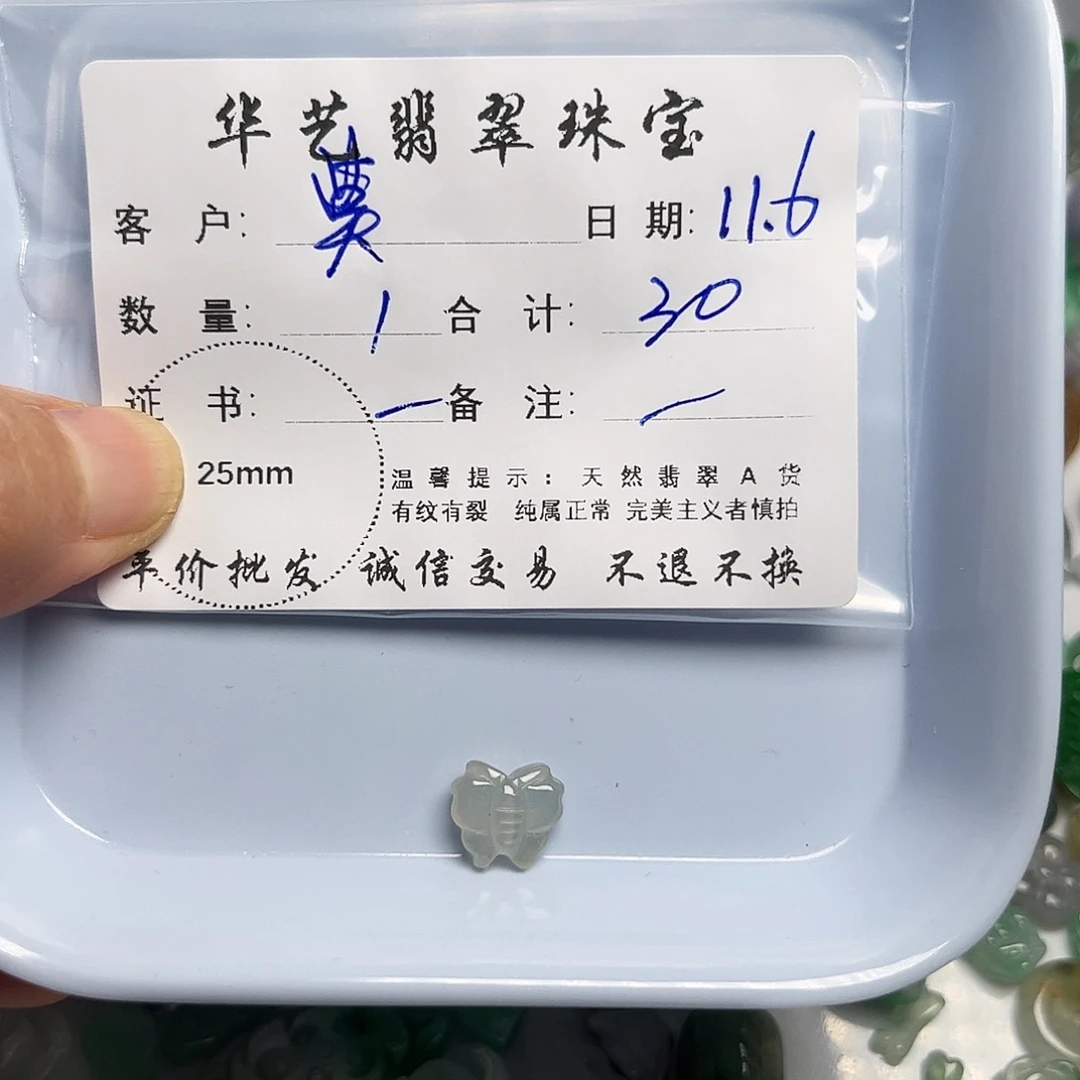 华艺翡翠珠宝
客户： 日期：11.6
数量：1 合计：30
证书：— 备注：—
25mm
温馨提示：天然翡翠A货
有纹有裂 纯属正常 完美主义者慎拍
平价批发 诚信交易 不退不换